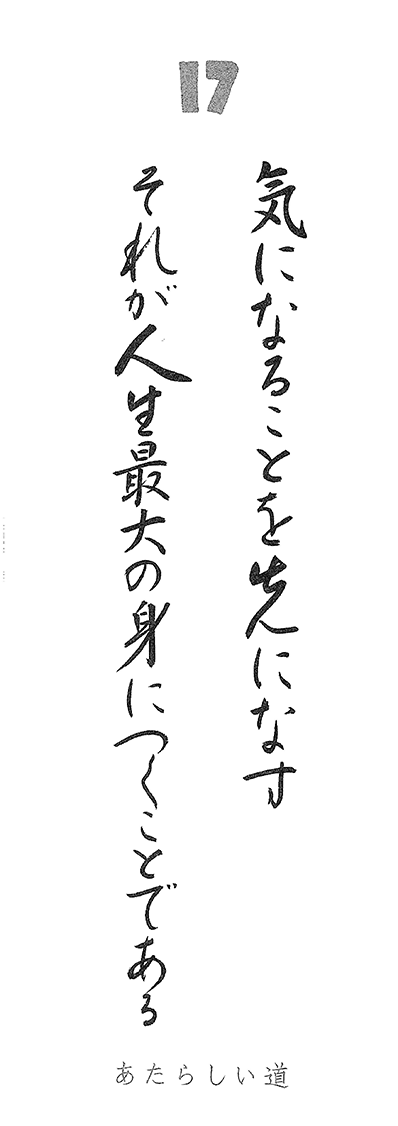 17
気になることを先になす
それが人生最大の身につくことである
あたらしい道